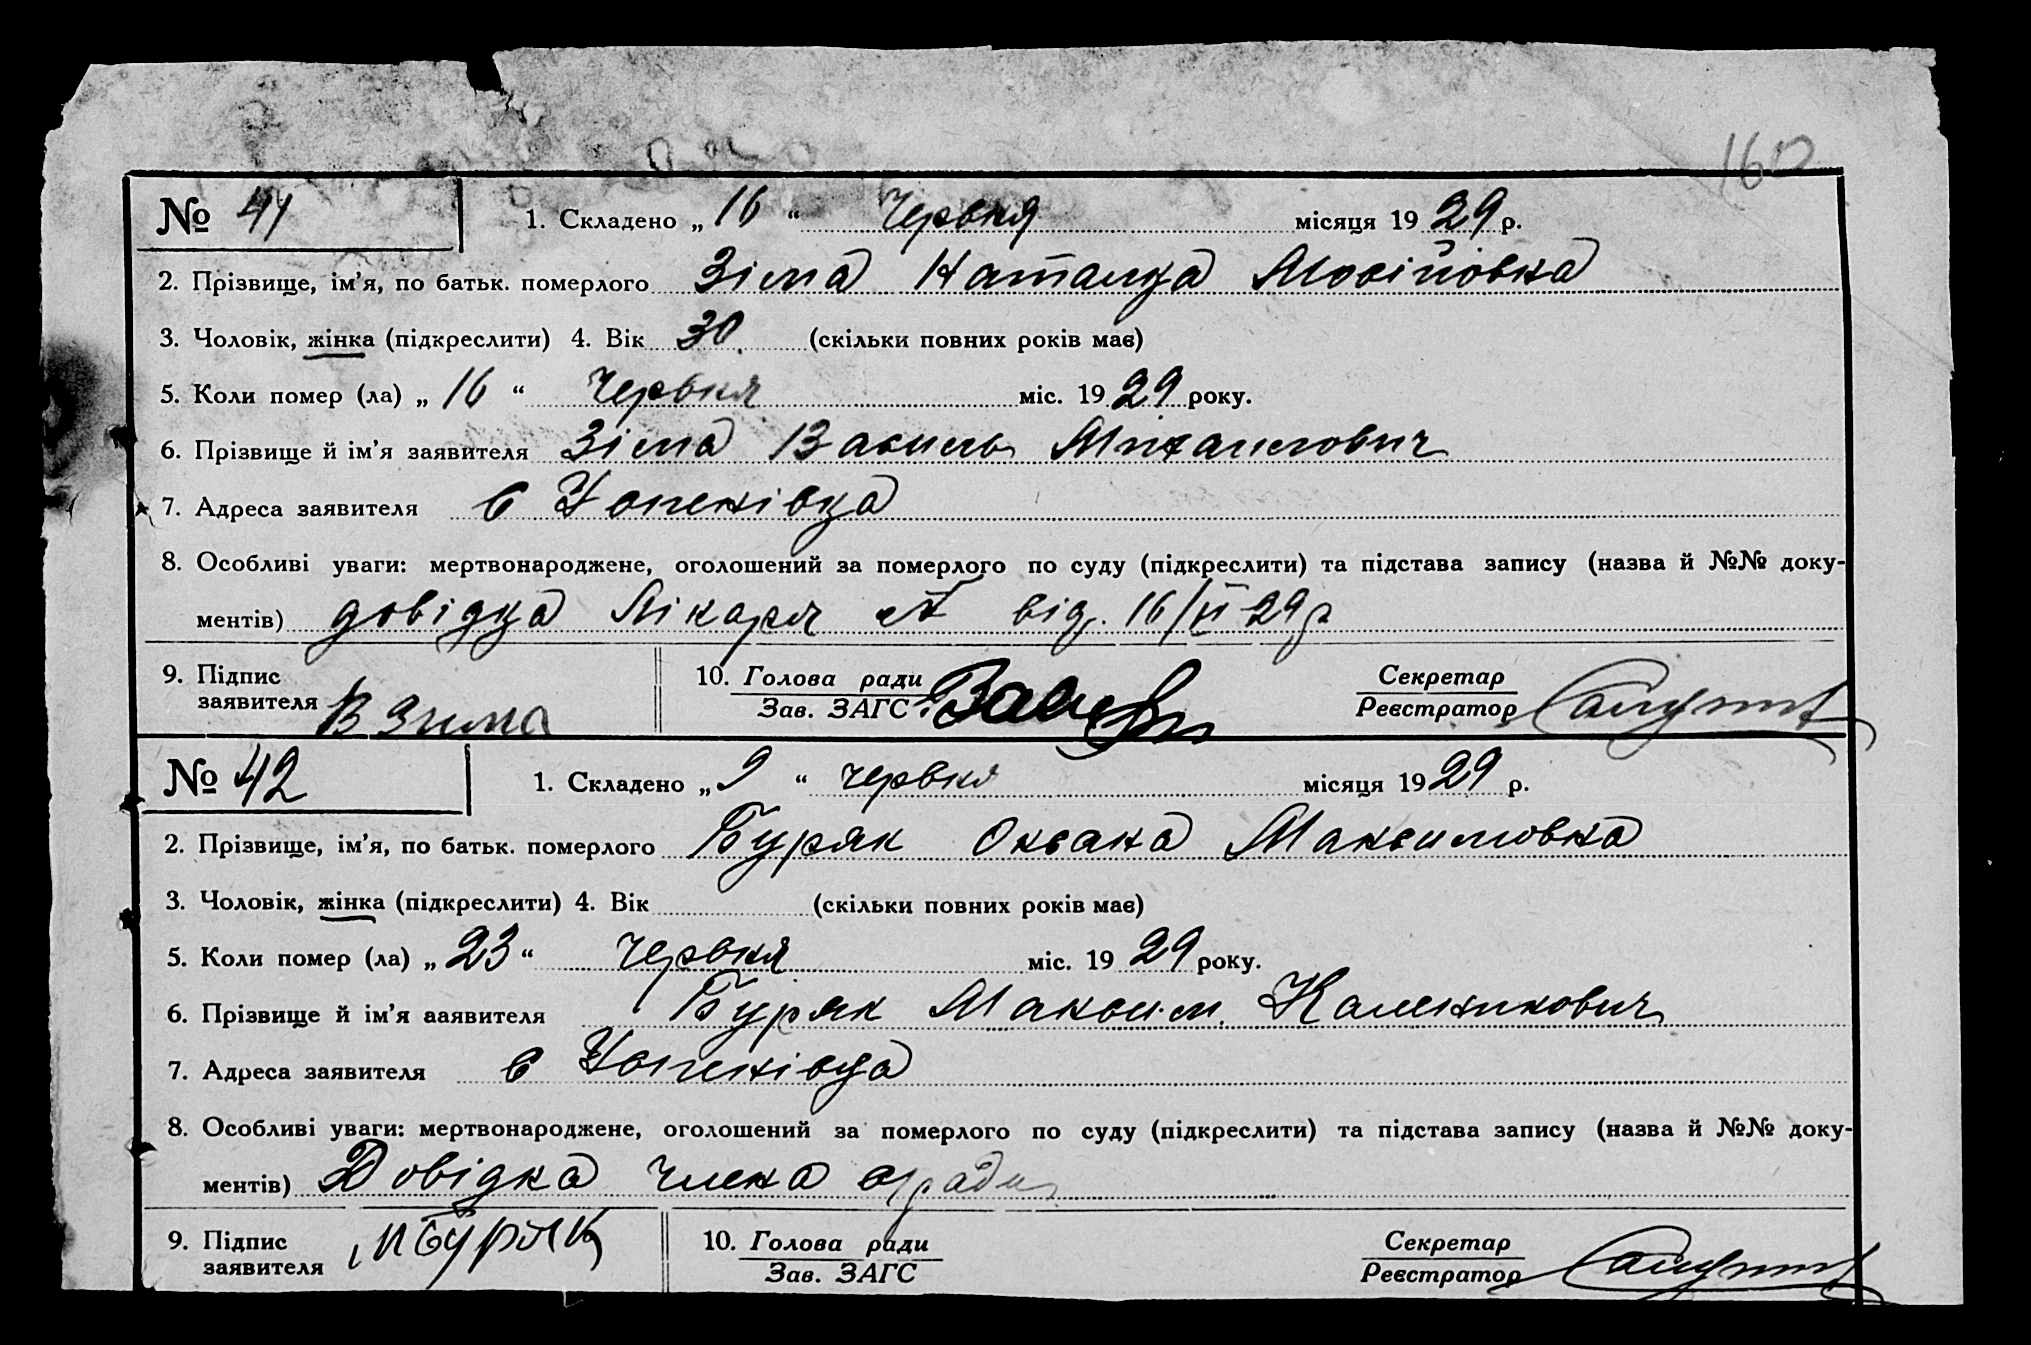 160
№ 41 1. Складено „ 16 “ Червня місяця 19 29 р.
2. Прізвище, ім’я, по батьк. померлого Зіма Наталка Мосійовна
3. Чоловік, жінка (підкреслити) 4. Вік 30 (скільки повних років має)
5. Коли помер (ла) „ 16 “ Червня міс. 19 29 року.
6. Прізвище й ім’я заявителя Зіма Василь Михаилович
7. Адреса заявителя с
8. Особливі уваги: мертвонароджене, оголошений за померлого по суду (підкреслити) та підстава запису (назва й №№ доку-
ментів) довідка Лікаря від. 16/VI 29 р
9. Підпис 10. Голова ради Секретар
заявителя В Зима Зав. ЗАГС Реєстратор
№ 42 1. Складено „ “ червня місяця 19 29 р.
2. Прізвище, ім’я, по батьк. померлого Буряк Оксана Максимовна
3. Чоловік, жінка (підкреслити) 4. Вік (скільки повних років має)
5. Коли помер (ла) „ 23 “ Червня міс. 19 29 року.
6. Прізвище й ім’я ааявителя Буряк Максим
7. Адреса заявителя с
8. Особливі уваги: мертвонароджене, оголошений за померлого по суду (підкреслити) та підстава запису (назва й №№ доку-
ментів) Довідка члена с/ради
9. Підпис 10. Голова ради Секретар
заявителя М Буряк Зав. ЗАГС Реєстратор